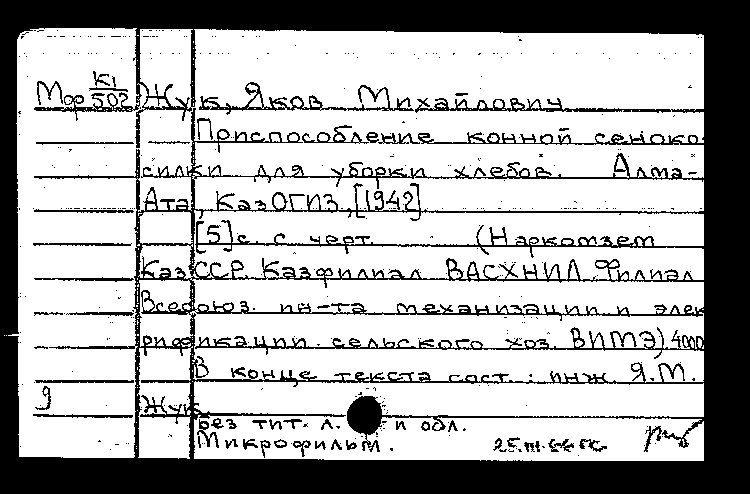 Мор К1/502 Жук, Яков Михайлович
Приспособление конной сеноко
силки для уборки хлебов. Алма-
Ата, КазОГИЗ, [1942]
[5]с. с черт. (Наркомзем
КазССР. Казфилиал ВАСХНИЛ. Филиал
Всесоюз. ин-та механизации и элек
рификации сельского хоз. ВИМЭ). 4000
В конце текста сост.: инж. Я.М.
9 Жук.
Без тит. л. и обл.
Микрофильм. 25.III.66